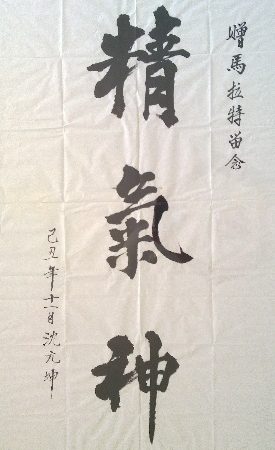 贈馬拉特留念
精氣神
己丑年十一月沈元坤